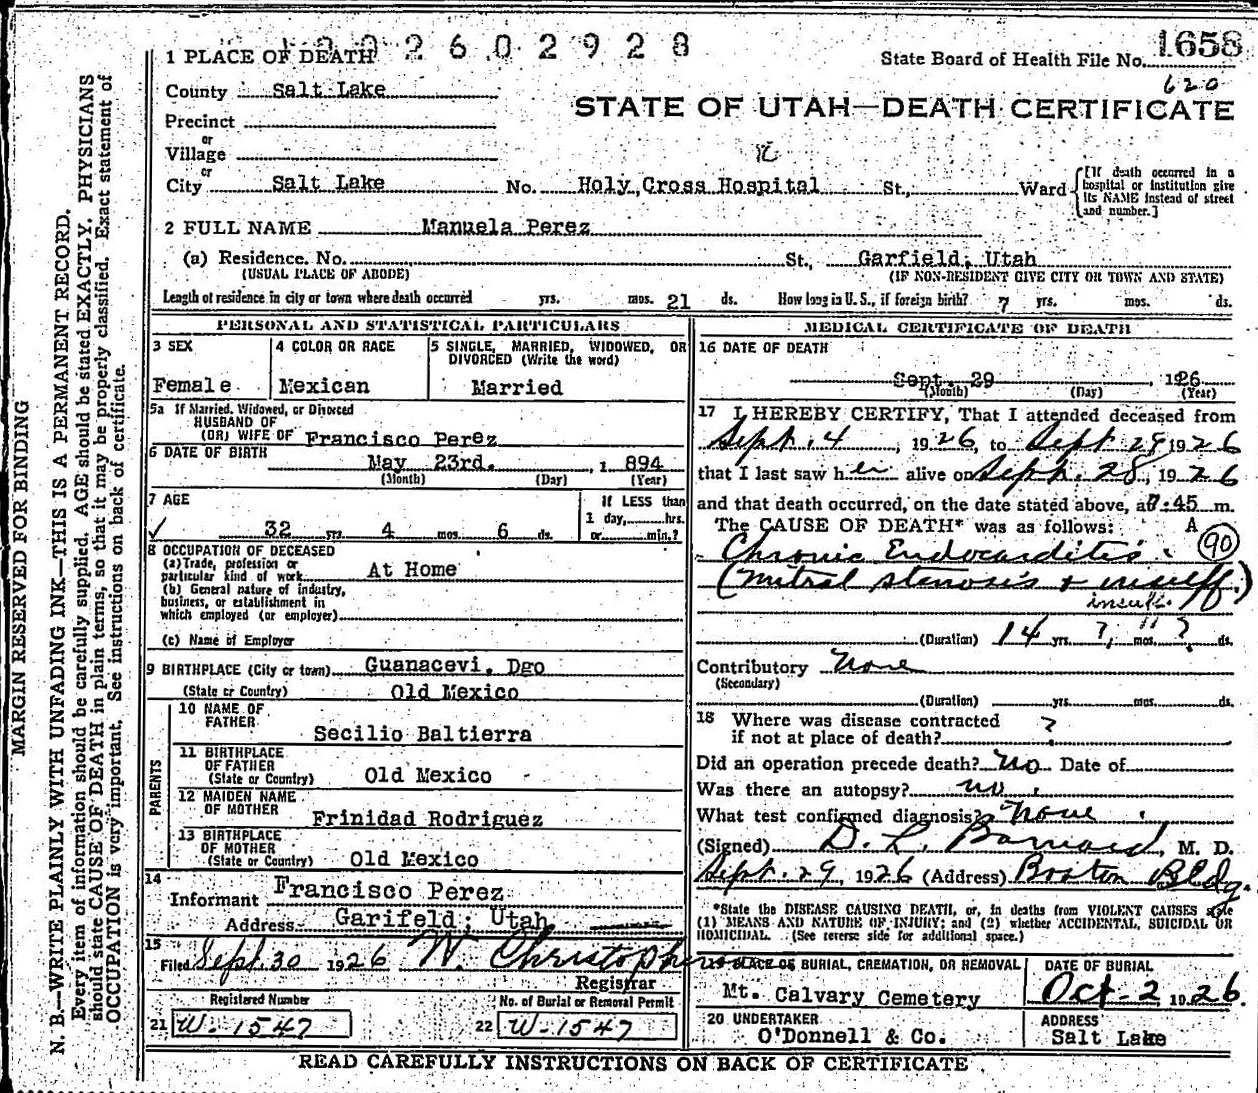 2602928
1 PLACE OF DEATH
State Board of Health File No. 1658
620
County Salt Lake
STATE OF UTAH—DEATH CERTIFICATE
Precinct
or
Village
or
City Salt Lake No. Holy Cross Hospital St., Ward
[If death occurred in a hospital or institution give its NAME instead of street and number.]
2 FULL NAME Manuela Perez
(a) Residence. No. St., Garfield, Utah
(USUAL PLACE OF ABODE) (IF NON-RESIDENT GIVE CITY OR TOWN AND STATE)
Length of residence in city or town where death occurred yrs. mos. 21 ds. How long in U. S., if foreign birth? 7 yrs. mos. ds.
PERSONAL AND STATISTICAL PARTICULARS
3 SEX
Female
4 COLOR OR RACE
Mexican
5 SINGLE, MARRIED, WIDOWED, OR
DIVORCED (Write the word)
Married
5a If Married, Widowed, or Divorced
HUSBAND OF
(OR) WIFE OF Francisco Perez
6 DATE OF BIRTH
May 23rd. , 1 894
(Month) (Day) (Year)
7 AGE
If LESS than
1 day, hrs.
or min.?
✓ 32 yrs 4 mos. 6 ds.
8 OCCUPATION OF DECEASED
(a) Trade, profession or
particular kind of work At Home
(b) General nature of industry,
business, or establishment in
which employed (or employer)
(c) Name of Employer
9 BIRTHPLACE (City or town) Guanacevi, Dgo
(State or Country) Old Mexico
PARENTS
10 NAME OF
FATHER
Secilio Baltierra
11 BIRTHPLACE
OF FATHER
(State or Country) Old Mexico
12 MAIDEN NAME
OF MOTHER
Frinidad Rodriguez
13 BIRTHPLACE
OF MOTHER
(State or Country) Old Mexico
14
Informant Francisco Perez
Address Garifeld; Utah
15
Filed Sept. 30 1926 W. Christopherson
Registrar
Registered Number
21 W-1547
No. of Burial or Removal Permit
22 W-1547
MEDICAL CERTIFICATE OF DEATH
16 DATE OF DEATH
Sept. 29 , 1926
(Month) (Day) (Year)
17 I HEREBY CERTIFY, That I attended deceased from
Sept. 4 , 1926, to Sept 29 1926
that I last saw her alive on Sept. 28, 1926
and that death occurred, on the date stated above, at 7:45 m.
The CAUSE OF DEATH* was as follows: A
Chronic Endocarditis. 90
(mitral stenosis & insuff.)
insuff.
(Duration) 14 yrs ? mos. ? ds.
Contributory None
(Secondary)
(Duration) yrs. mos. ds.
18 Where was disease contracted
if not at place of death? ?
Did an operation precede death? No Date of
Was there an autopsy? no
What test confirmed diagnosis? None
(Signed) D. L. Barnard, M. D.
Sept. 29, 1926 (Address) Boston Bldg.
*State the DISEASE CAUSING DEATH, or, in deaths from VIOLENT CAUSES state
(1) MEANS AND NATURE OF INJURY; and (2) whether ACCIDENTAL, SUICIDAL OR
HOMICIDAL. (See reverse side for additional space.)
19 PLACE OF BURIAL, CREMATION, OR REMOVAL
Mt. Calvary Cemetery
DATE OF BURIAL
Oct-2 1926.
20 UNDERTAKER
O'Donnell & Co.
ADDRESS
Salt Lake
READ CAREFULLY INSTRUCTIONS ON BACK OF CERTIFICATE
MARGIN RESERVED FOR BINDING
N. B.—WRITE PLAINLY WITH UNFADING INK—THIS IS A PERMANENT RECORD.
Every item of information should be carefully supplied. AGE should be stated EXACTLY. PHYSICIANS
should state CAUSE OF DEATH in plain terms, so that it may be properly classified. Exact statement of
OCCUPATION is very important. See instructions on back of certificate.